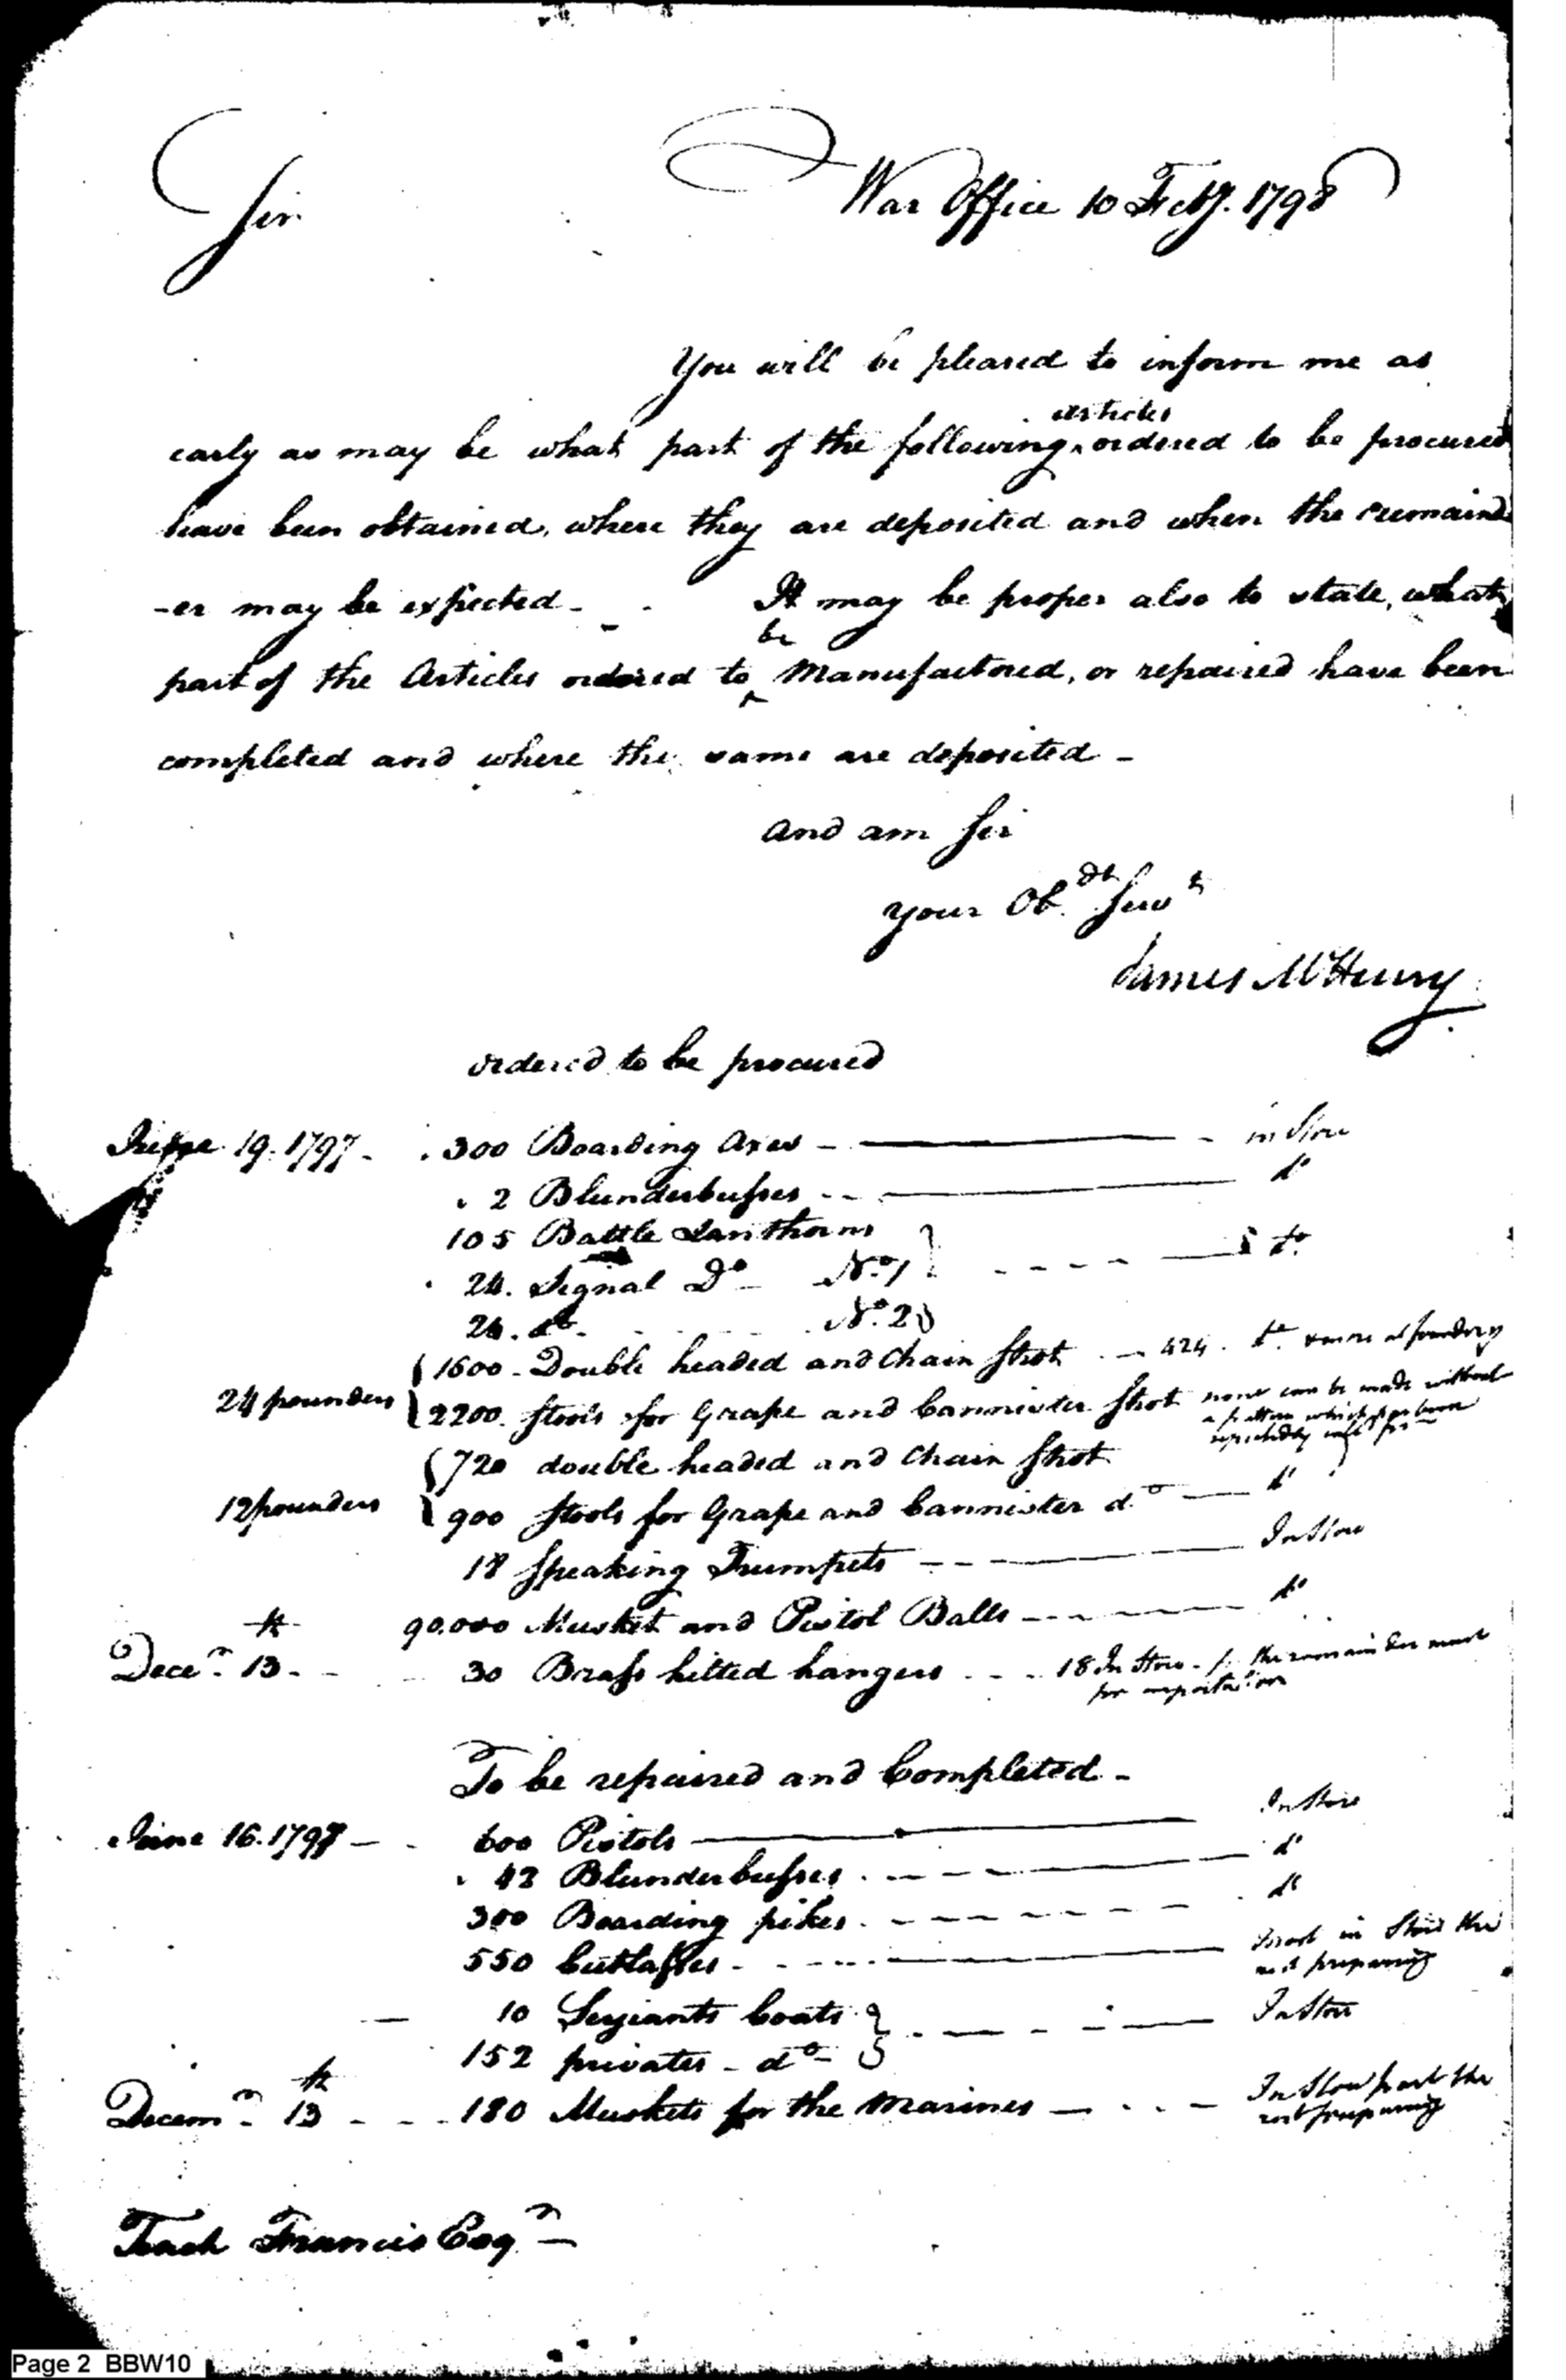 Sir
War Office 10 Feby. 1798
You will be pleased to inform me as
articles
early as may be what part of the following ‸ ordered to be procured
have been obtained, where they are deposited and when the remaind
-er may be expected - - It may be proper also to state, what
be
part of the Articles ordered to ‸ Manufactored, or repaired have been
completed and where the same are deposited -
and am Sir
your Obdt Servt
James McHenry
ordered to be procured
June 19. 1797 - 300 Boarding Axes - in Store
2 Blunderbusses - - do
105 Battle Lanthorns
24. Signal Do - No. 1 } - - - - do
24. do. No. 2 }
{ 1600 - Double headed and Chain Shot - 424. do. more at foundery
24 pounders { 2200. Stools for Grape and Cannister Shot none can be made without
a pattern which has been
repeatedly call'd for
{ 720 double headed and Chain Shot
12 pounders { 900 Stools for Grape and Cannister do - do
18 Speaking Trumpets - - - In Store
90.000 Musket and Pistol Balls - - - - do
Decer. 13th - - 30 Brass hilted hangers - - - 18 In Store - the remainder must
for importation
To be repaired and Completed -
June 16. 1797 - - 600 Pistols - In Store
42 Blunderbusses - - - - do
300 Boarding pikes - - - - - - do
550 Cutlasses - - - - - most in Store the
rest preparing
- 10 Serjeants Coats } - - - - In Store
152 privates - do - }
Decemr. 13th - - - 180 Muskets for the Marines - - - - In Store part the
rest preparing
Tench Francis Esqr -
Page 2 BBW10